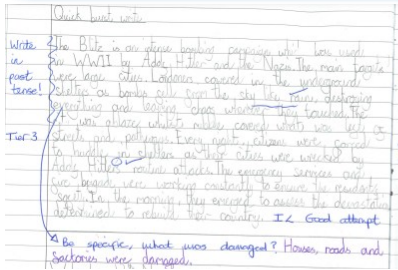 Quick burst write
Write in past tense!
Tier 3
The Blitz is an intense bombing campaign which was used
in WWII by Adolf Hitler and the Nazis. The main targets
were large cities. Londoners covered in the underground
shelters as bombs fell from the sky like rain, destroying
everything and leaving chaos wherever they touched. The
was ablaze whilst rubble covered what was left of
streets and pathways. Every night, citizens were forced
to huddle in shelters as their cities were wrecked by
Adolf Hitler's routine attacks. The emergency services and
fire brigade were working constantly to ensure the residents'
safety. In the morning, they emerged to assess the devastation
determined to rebuild their country. I< Good attempt
Be specific, what was damaged? Houses, roads and
factories were damaged.